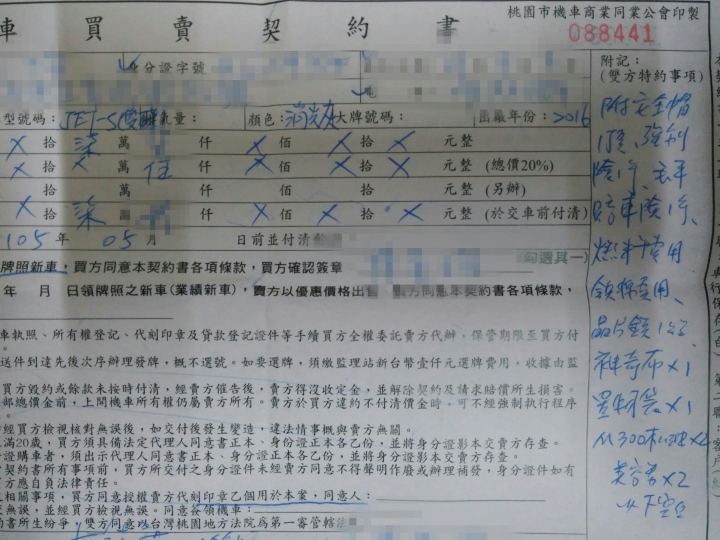 桃園市機車商業同業公會印製
車買賣契約書
088441
身分證字號
附記：
(雙方特約事項)
型號碼：JET-S 氣量： 顏色：消光灰 大牌號碼： 出廠年份：2016
X 拾 柒 萬 仟 X 佰 X 拾 X 元整
X 拾 X 萬 伍 仟 X 佰 X 拾 X 元整 (總價20%)
拾 萬 仟 佰 拾 元整 (另辦)
X 拾 柒 仟 X 佰 X 拾 X 元整 (於交車前付清)
105 年 05 月 日前並付清
牌照新車，買方同意本契約書各項條款，買方確認簽章
勾選其一)
年 月 日領牌照之新車(業績新車)，賣方以優惠價格出售，賣方同意本契約書各項條款，
車執照、所有權登記、代刻印章及貸款登記證件等手續買方全權委託賣方代辦，保管期限至買方付
送件到達先後次序辦理發牌，概不選號。如要選牌，須繳監理站新台幣壹仟元選牌費用，收據由監
買方毀約或餘款未按時付清，經賣方催告後，賣方得沒收定金，並解除契約及請求賠償所生損害。
部總價金前，上開機車所有權仍屬賣方所有。賣方於買方違約不付清價金時，可不經強制執行程序
經買方檢視核對無誤後，如交付後發生變造，違法情事概與賣方無關。
滿20歲，買方須具備法定代理人同意書正本、身份證正本各乙份，並將身分證影本交賣方存查。
證購車者，須出示代理人同意書正本、身分證正本各乙份，並將身分證影本交賣方存查。
契約書所有事項前，買方所交付之身分證件未經賣方同意不得聲明作廢或辦理補發，身分證件如有
買方應自負法律責任。
相關事項，買方同意授權賣方代刻印章乙個用於本案，同意人：
無誤，並經買方檢視無誤。同意簽領機車：
書所生紛爭，雙方同意以台灣桃園地方法院為第一審管轄法
附安全帽
1頂、強制
險1年、
賠車險1年、
燃料費用
領牌費用、
晶片鎖1
神奇布x1
置物袋x1
x2
以下空白